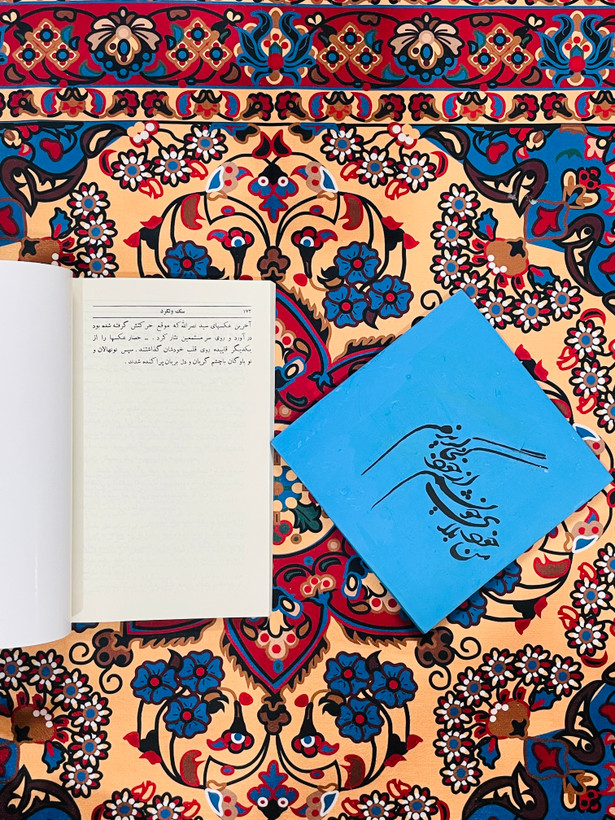 سگ ولگرد ۱۷۳
آخرین عکسهای سید نصرالله که موقع حرکتش گرفته شده بود
در آورد و روی سر مستمعین نثار کرد . ـ حضار عکسها را از
یکدیگر قاپیده روی قلب خودشان گذاشتند. سپس نونهالان و
نو باوگان باچشم گریان و دل بریان پراکنده شدند .